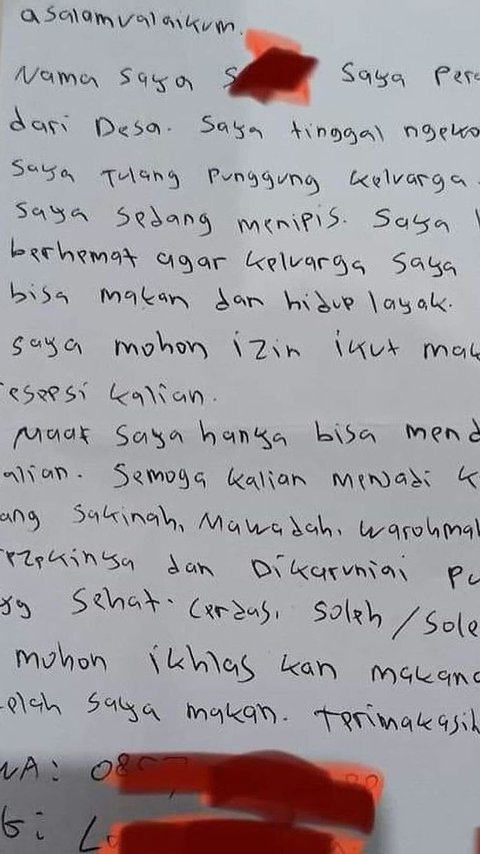 asalamualaikum.
Nama saya S saya Pera
dari Desa. saya tinggal ngeko
saya Tulang Punggung keluarga.
saya sedang menipis. saya
berhemat agar keluarga saya
bisa makan dan hidup layak.
saya mohon izin ikut mak
resepsi kalian.
Maaf saya hanya bisa mend
alian. Semoga kalian menjadi k
ang Sakinah, Mawadah, warohmah
rezekinya dan Dikaruniai Pu
yg Sehat. Cerdas, Soleh / Sole
mohon ikhlas kan makana
elah saya makan. Terimakasih
WA: 08
G: L